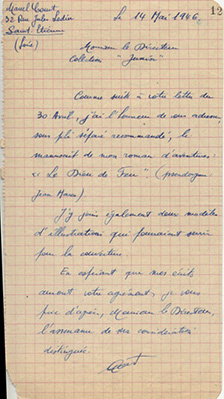 12
Marcel
32 Rue Jules Ledin
Saint-Etienne
(Loire)
Le 14 Mai 1946.
Monsieur le Directeur
Collection "Junior"
Comme suite à votre lettre du
30 Avril, j'ai l'honneur de vous adresser,
sous pli séparé recommandé, le
manuscrit de mon roman d'aventures
« Le Dieu de Feu ». (pseudonyme
Jean
J'y joins également deux modèles
d'illustrations qui pourraient servir
pour la couverture.
En espérant que mes écrits
auront votre agrément, je vous
prie d'agréer, Monsieur le Directeur,
l'assurance de ma considération
distinguée.